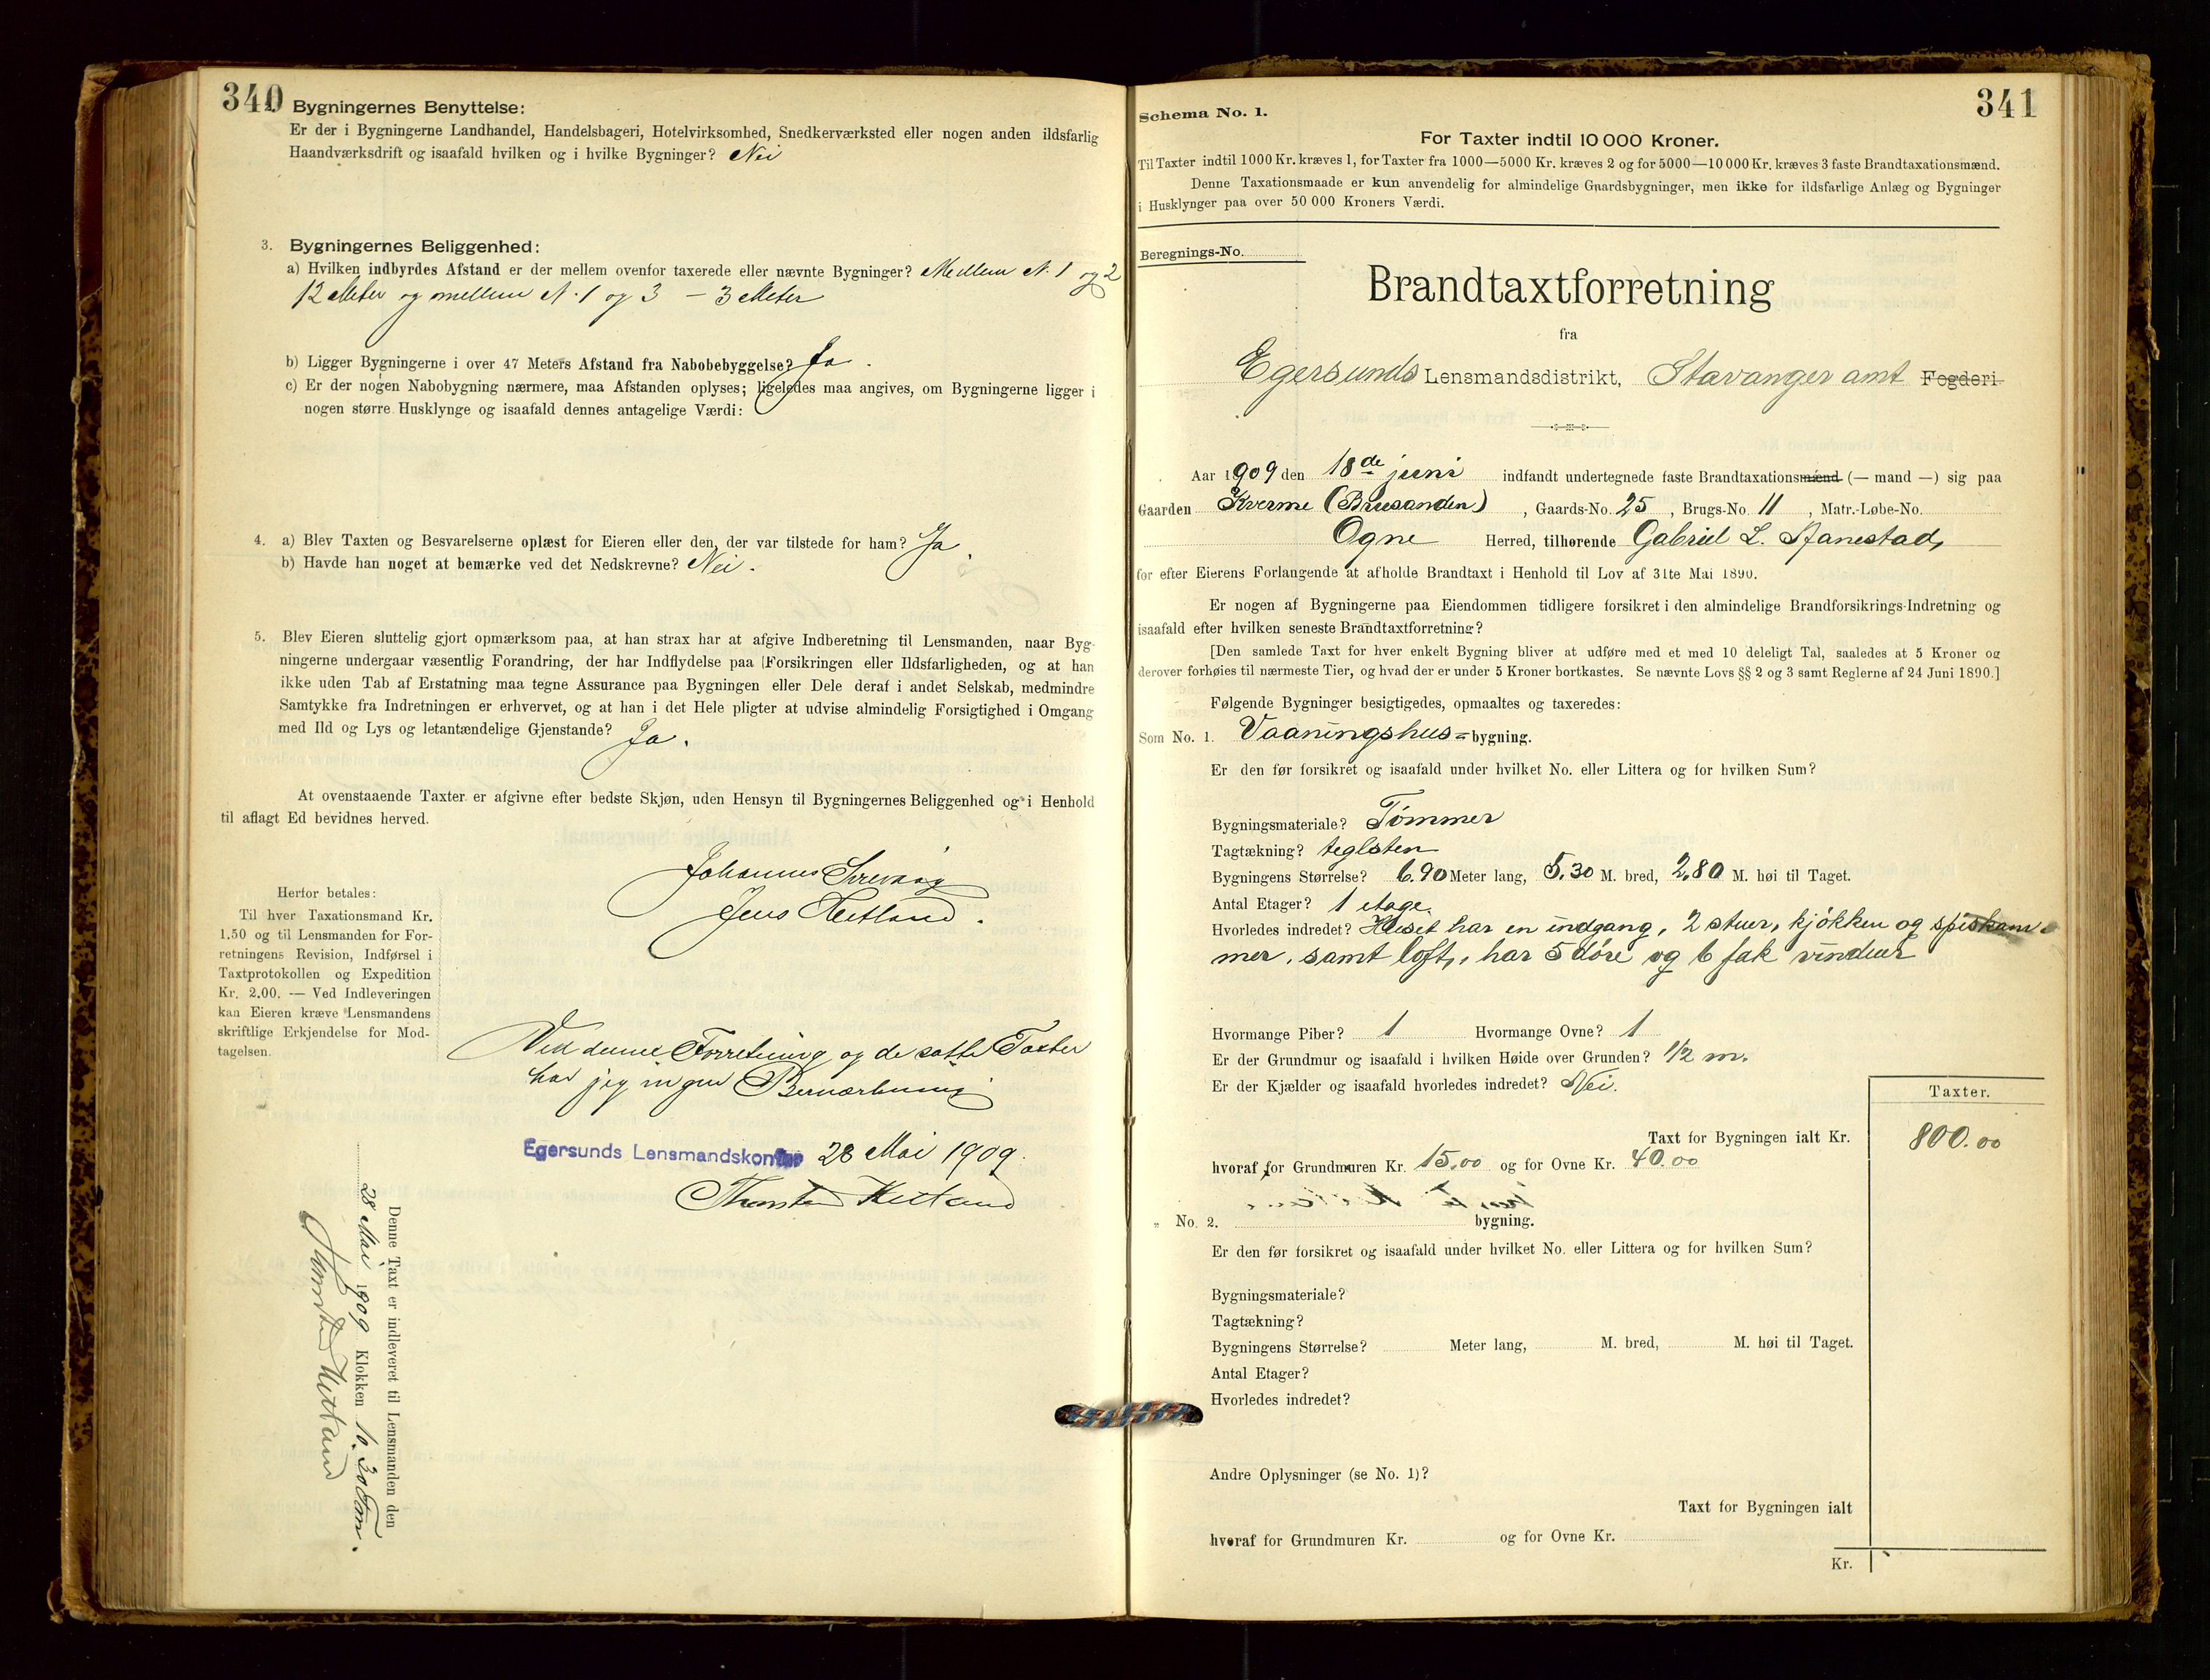 340
Bygningernes Benyttelse:
Er der i Bygningerne Landhandel, Handelsbageri, Hotelvirksomhed, Snedkerværksted eller nogen anden ildsfarlig
Haandværksdrift og isaafald hvilken og i hvilke Bygninger? Nei
3. Bygningernes Beliggenhed:
a) Hvilken indbyrdes Afstand er der mellem ovenfor taxerede eller nævnte Bygninger? Mellem N. 1 og 2
12 Meter og mellem N. 1 og 3 – 3 Meter
b) Ligger Bygningerne i over 47 Meters Afstand fra Nabobebyggelse? Ja.
c) Er der nogen Nabobygning nærmere, maa Afstanden oplyses; ligeledes maa angives, om Bygningerne ligger i
nogen større Husklynge og isaafald dennes antagelige Værdi:
4. a) Blev Taxten og Besvarelserne oplæst for Eieren eller den, der var tilstede for ham? Ja.
b) Havde han noget at bemærke ved det Nedskrevne? Nei.
5. Blev Eieren sluttelig gjort opmærksom paa, at han strax har at afgive Indberetning til Lensmanden, naar Byg-
ningerne undergaar væsentlig Forandring, der har Indflydelse paa Forsikringen eller Ildsfarligheden, og at han
ikke uden Tab af Erstatning maa tegne Assurance paa Bygningen eller Dele deraf i andet Selskab, medmindre
Samtykke fra Indretningen er erhvervet, og at han i det Hele pligter at udvise almindelig Forsigtighed i Omgang
med Ild og Lys og letantændelige Gjenstande? Ja.
At ovenstaaende Taxter er afgivne efter bedste Skjøn, uden Hensyn til Bygningernes Beliggenhed og i Henhold
til aflagt Ed bevidnes herved.
Johannes Sirevaag
Jens Hetland.
Herfor betales:
Til hver Taxationsmand Kr.
1.50 og til Lensmanden for For-
retningens Revision, Indførsel i
Taxtprotokollen og Expedition
Kr. 2.00. — Ved Indleveringen
kan Eieren kræve Lensmandens
skriftlige Erkjendelse for Mod-
tagelsen.
Ved denne Forretning og de satte Taxter
har jeg ingen Bemærkning
Egersunds Lensmandskontor 28 Mai 1909.
Thorsten Hetland
Denne Taxt er indleveret til Lensmanden den
28 Mai 1909 Klokken 10.30 Fm.
Thorsten Hetland
341
Schema No. 1.
For Taxter indtil 10 000 Kroner.
Til Taxter indtil 1000 Kr. kræves 1, for Taxter fra 1000—5000 Kr. kræves 2 og for 5000—10 000 Kr. kræves 3 faste Brandtaxationsmænd.
Denne Taxationsmaade er kun anvendelig for almindelige Gaardsbygninger, men ikke for ildsfarlige Anlæg og Bygninger
i Husklynger paa over 50 000 Kroners Værdi.
Beregnings-No.
Brandtaxtforretning
fra
Egersunds Lensmandsdistrikt, Stavanger amt Fogderi
Aar 1909 den 18de juni indfandt undertegnede faste Brandtaxationsmænd (— mand —) sig paa
Gaarden Kverme (Bruesanden), Gaards-No. 25, Brugs-No. 11, Matr.-Løbe-No.
Ogne Herred, tilhørende Gabriel L. Stanestad,
for efter Eierens Forlangende at afholde Brandtaxt i Henhold til Lov af 31te Mai 1890.
Er nogen af Bygningerne paa Eiendommen tidligere forsikret i den almindelige Brandforsikrings-Indretning og
isaafald efter hvilken seneste Brandtaxtforretning?
[Den samlede Taxt for hver enkelt Bygning bliver at udføre med et med 10 deleligt Tal, saaledes at 5 Kroner og
derover forhøies til nærmeste Tier, og hvad der er under 5 Kroner bortkastes. Se nævnte Lovs §§ 2 og 3 samt Reglerne af 24 Juni 1890.]
Følgende Bygninger besigtigedes, opmaaltes og taxeredes:
Som No. 1. Vaaningshus=bygning.
Er den før forsikret og isaafald under hvilket No. eller Littera og for hvilken Sum?
Bygningsmateriale? Tømmer
Tagtækning? teglsten
Bygningens Størrelse? 6.90 Meter lang, 5.30 M. bred, 2.80 M. høi til Taget.
Antal Etager? 1 etage
Hvorledes indredet? Huset har en indgang, 2 stuer, kjøkken og spiskam-
mer, samt loft, har 5 døre og 6 fak vinduer
Hvormange Piber? 1 Hvormange Ovne? 1
Er der Grundmur og isaafald i hvilken Høide over Grunden? 1/2 m.
Er der Kjælder og isaafald hvorledes indredet? Nei.
Taxter.
Taxt for Bygningen ialt Kr. 800.00
hvoraf for Grundmuren Kr. 15.00 og for Ovne Kr. 40.00
„ No. 2. bygning.
Er den før forsikret og isaafald under hvilket No. eller Littera og for hvilken Sum?
Bygningsmateriale?
Tagtækning?
Bygningens Størrelse? Meter lang, M. bred, M. høi til Taget.
Antal Etager?
Hvorledes indredet?
Andre Oplysninger (se No. 1)?
Taxt for Bygningen ialt
hvoraf for Grundmuren Kr. og for Ovne Kr.
Kr.